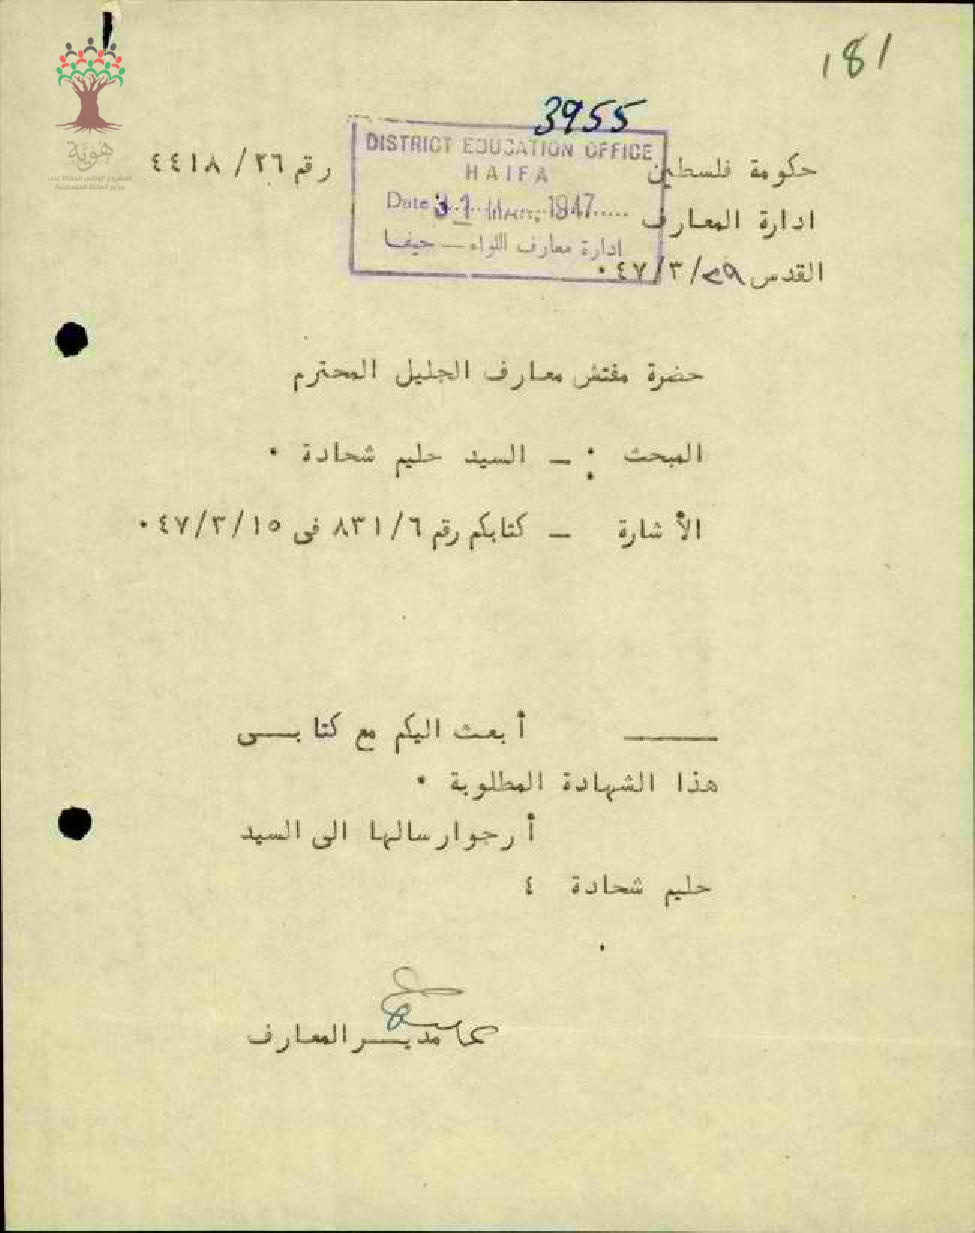 181
3955
DISTRICT EDUCATION OFFICE
HAIFA
Date 31 Mar. 1947
ادارة معارف اللواء — حيفا
حكومة فلسطين
رقم ٢٦/ ٤٤١٨
ادارة المعارف
القدس ٢٩/٣/٤٧٠
حضرة مفتش معارف الجليل المحترم
المبحث : ـ السيد حليم شحادة ٠
الأشارة ـ كتابكم رقم ٨٣١/٦ فى ٤٧/٣/١٥ ٠
أبعث اليكم مع كتابـــى
هذا الشهادة المطلوبة ٠
أرجوارسالها الى السيد
حليم شحادة ٤
مديـــر المعارف
هوية
المشروع الوطني للحفاظ على
جذور العائلة الفلسطينية